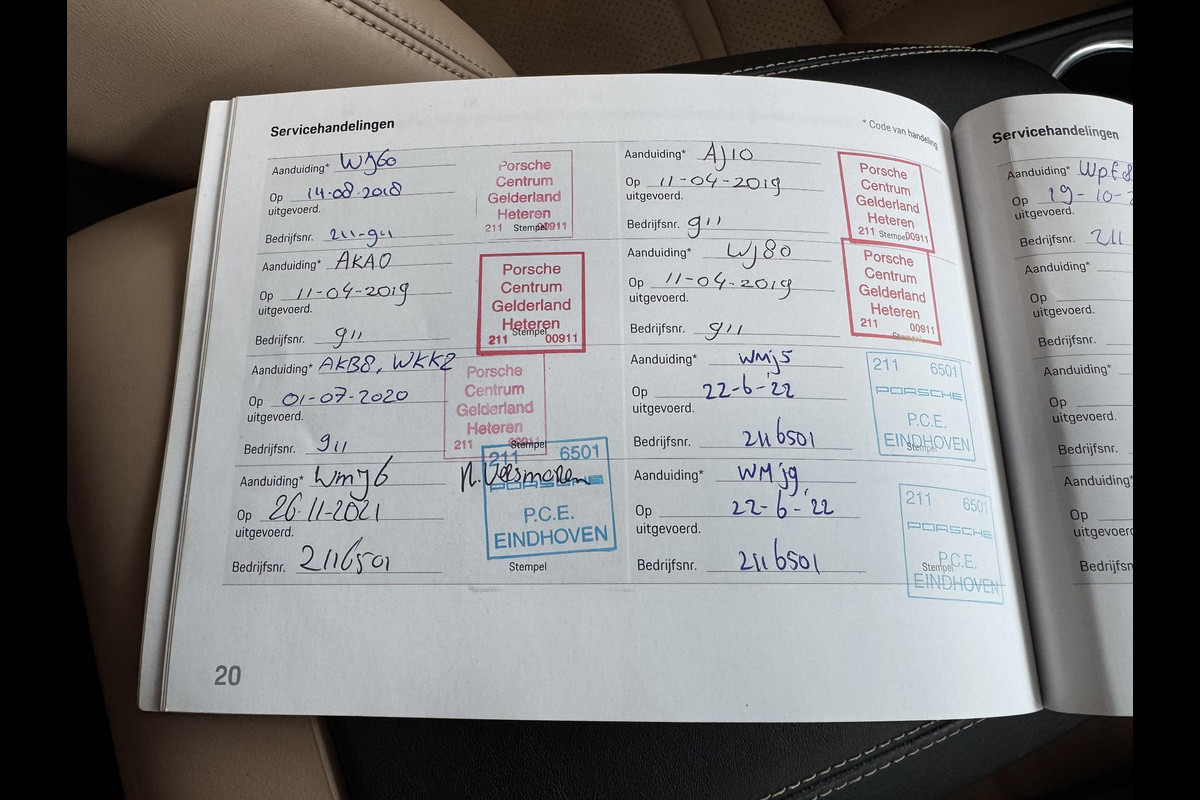 Servicehandelingen
* Code van handeling
Aanduiding* WJ60
Op uitgevoerd. 14-08-2018
Bedrijfsnr. 211-911
Porsche
Centrum
Gelderland
Heteren
211 00911
Stempel
Aanduiding* AKA0
Op uitgevoerd. 11-04-2019
Bedrijfsnr. 911
Porsche
Centrum
Gelderland
Heteren
211 00911
Stempel
Aanduiding* AKB8, WKK2
Op uitgevoerd. 01-07-2020
Bedrijfsnr. 911
Porsche
Centrum
Gelderland
Heteren
211 00911
Stempel
Aanduiding* WMJ6
Op uitgevoerd. 26-11-2021
Bedrijfsnr. 2116501
211 6501
PORSCHE
P.C.E.
EINDHOVEN
Stempel
Aanduiding* AJ10
Op uitgevoerd. 11-04-2019
Bedrijfsnr. 911
Porsche
Centrum
Gelderland
Heteren
211 00911
Stempel
Aanduiding* WJ80
Op uitgevoerd. 11-04-2019
Bedrijfsnr. 911
Porsche
Centrum
Gelderland
Heteren
211 00911
Stempel
Aanduiding* WMj5
Op uitgevoerd. 22-6-'22
Bedrijfsnr. 2116501
211 6501
PORSCHE
P.C.E.
EINDHOVEN
Stempel
Aanduiding* WMj9
Op uitgevoerd. 22-6-'22
Bedrijfsnr. 2116501
211 6501
PORSCHE
P.C.E.
EINDHOVEN
Stempel
20
Servicehandelingen
Aanduiding*
Op uitgevoerd. 19-10-
Bedrijfsnr. 211
Aanduiding*
Op
uitgevoerd.
Bedrijfsnr.
Aanduiding*
Op
uitgevoerd.
Bedrijfsnr.
Aanduiding*
Op
uitgevoerd.
Bedrijfsn